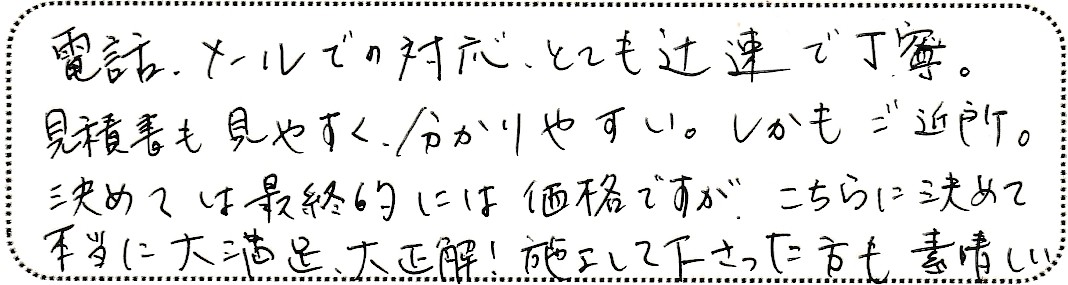 電話、メールでの対応、とても迅速で丁寧。
見積書も見やすく、分かりやすい。しかもご近所。
決めては最終的には価格ですが、こちらに決めて
本当に大満足、大正解！施工して下さった方も素晴しい